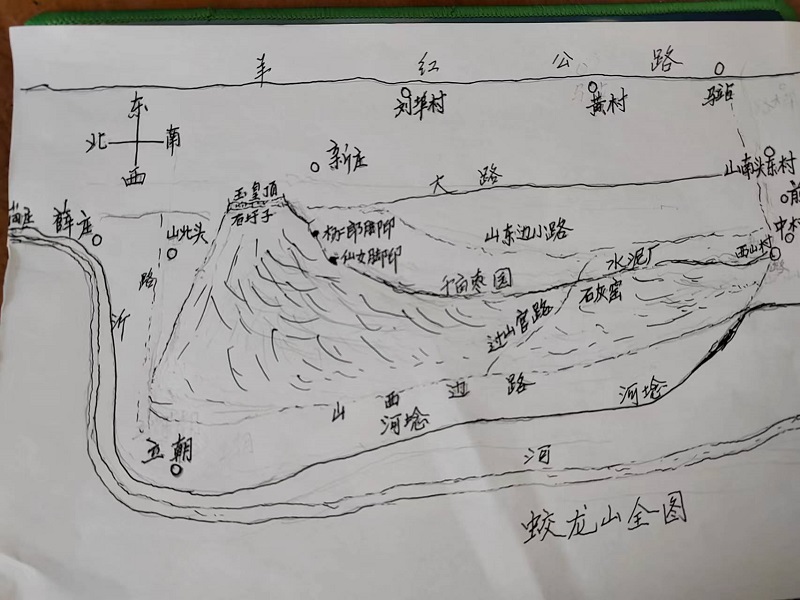 羊 红 公 路
刘埠村
黄村
东
北 南
西
新庄
大 路
山南头东村
玉皇顶
石圩子
薛庄
山北头
杨二郎脚印
仙女脚印
山东边小路
中村
西山村
水泥厂
千亩枣园
石灰窑
过山官路
路
沂
山 西 边 路
河埝
河埝
立朝
河
蛟龙山全图